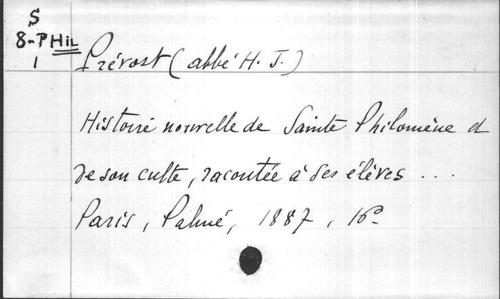 S
8-PHIL
1
Prévost (abbé H. J.)
Histoire nouvelle de Sainte Philomène et
de son culte, racontée à ses élèves ...
Paris, Palmé, 1887, 16º